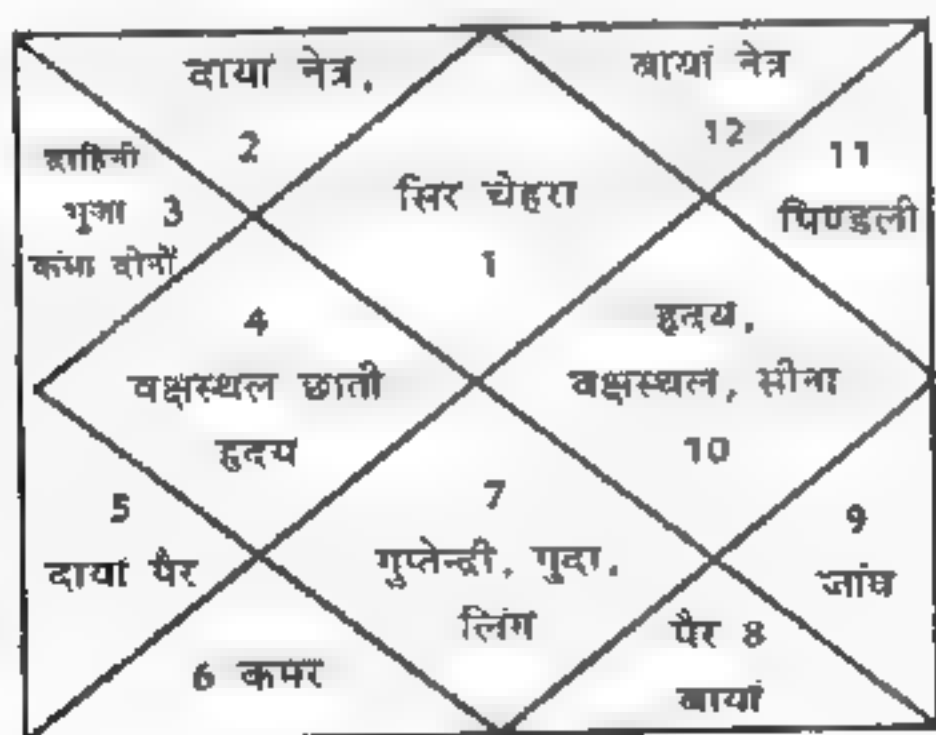 दायां नेत्र,
2
बायां नेत्र
12
दाहिनी
भुजा 3
कंधा दोनों
11
पिण्डली
सिर चेहरा
1
4
वक्षस्थल छाती
हृदय
हृदय,
वक्षस्थल, सीना
10
5
दायां पैर
7
गुप्तेन्द्री, गुदा,
लिंग
9
जांघ
6 कमर
पैर 8
बायां